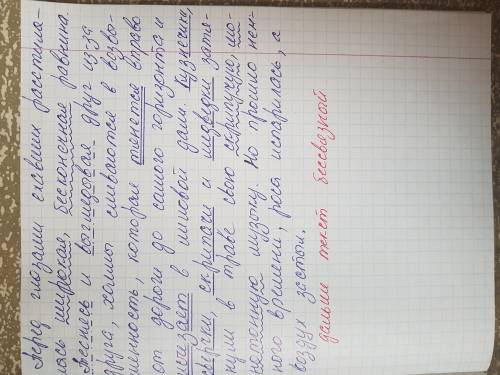 Перед глазами ехавших расстила-
лась широкая, бесконечная равнина.
Теснясь и выглядовая друг из-за
друга, холмы сливаются в возвы-
шенность, которая тенется вправо
от дороги до самого горизонта и
исчезает в лиловой дали. Кузнечики,
сверчки, скрипачи и медведки затя-
нули в траве свою скрипучую мо-
нотонную музыку. Но прошло нем-
ного времени, роса испарилась, а
воздух застыл.
дальше текст бессвязной